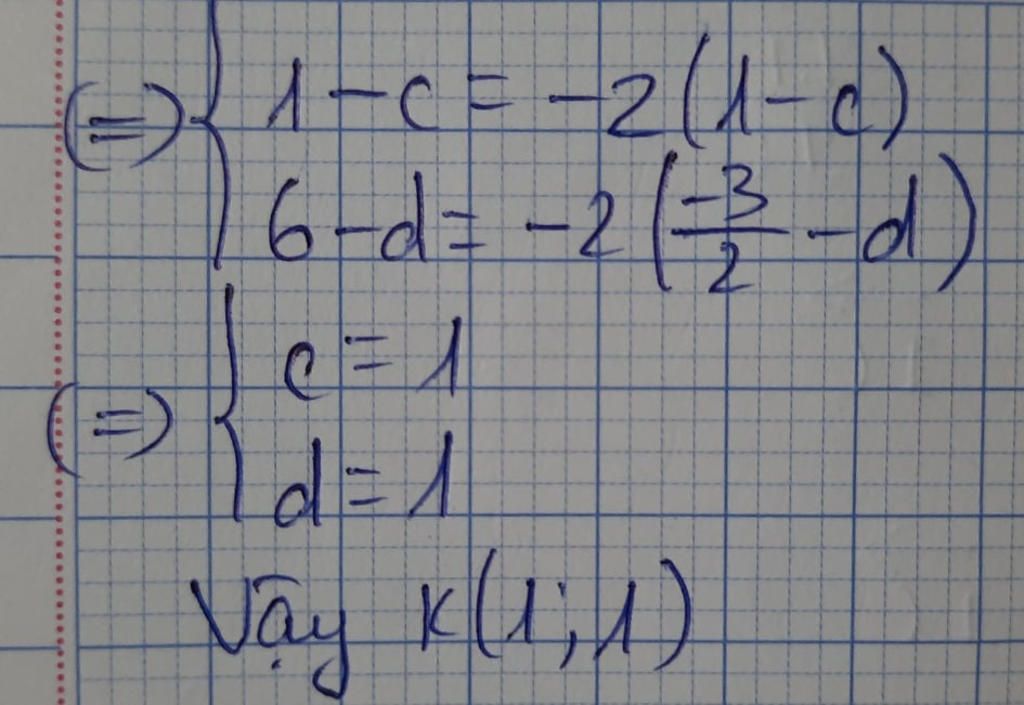 (=) { 1 - c = -2(1 - c)
6 - d = -2(-3/2 - d)
(=) { c = 1
d = 1
Vậy K(1; 1)